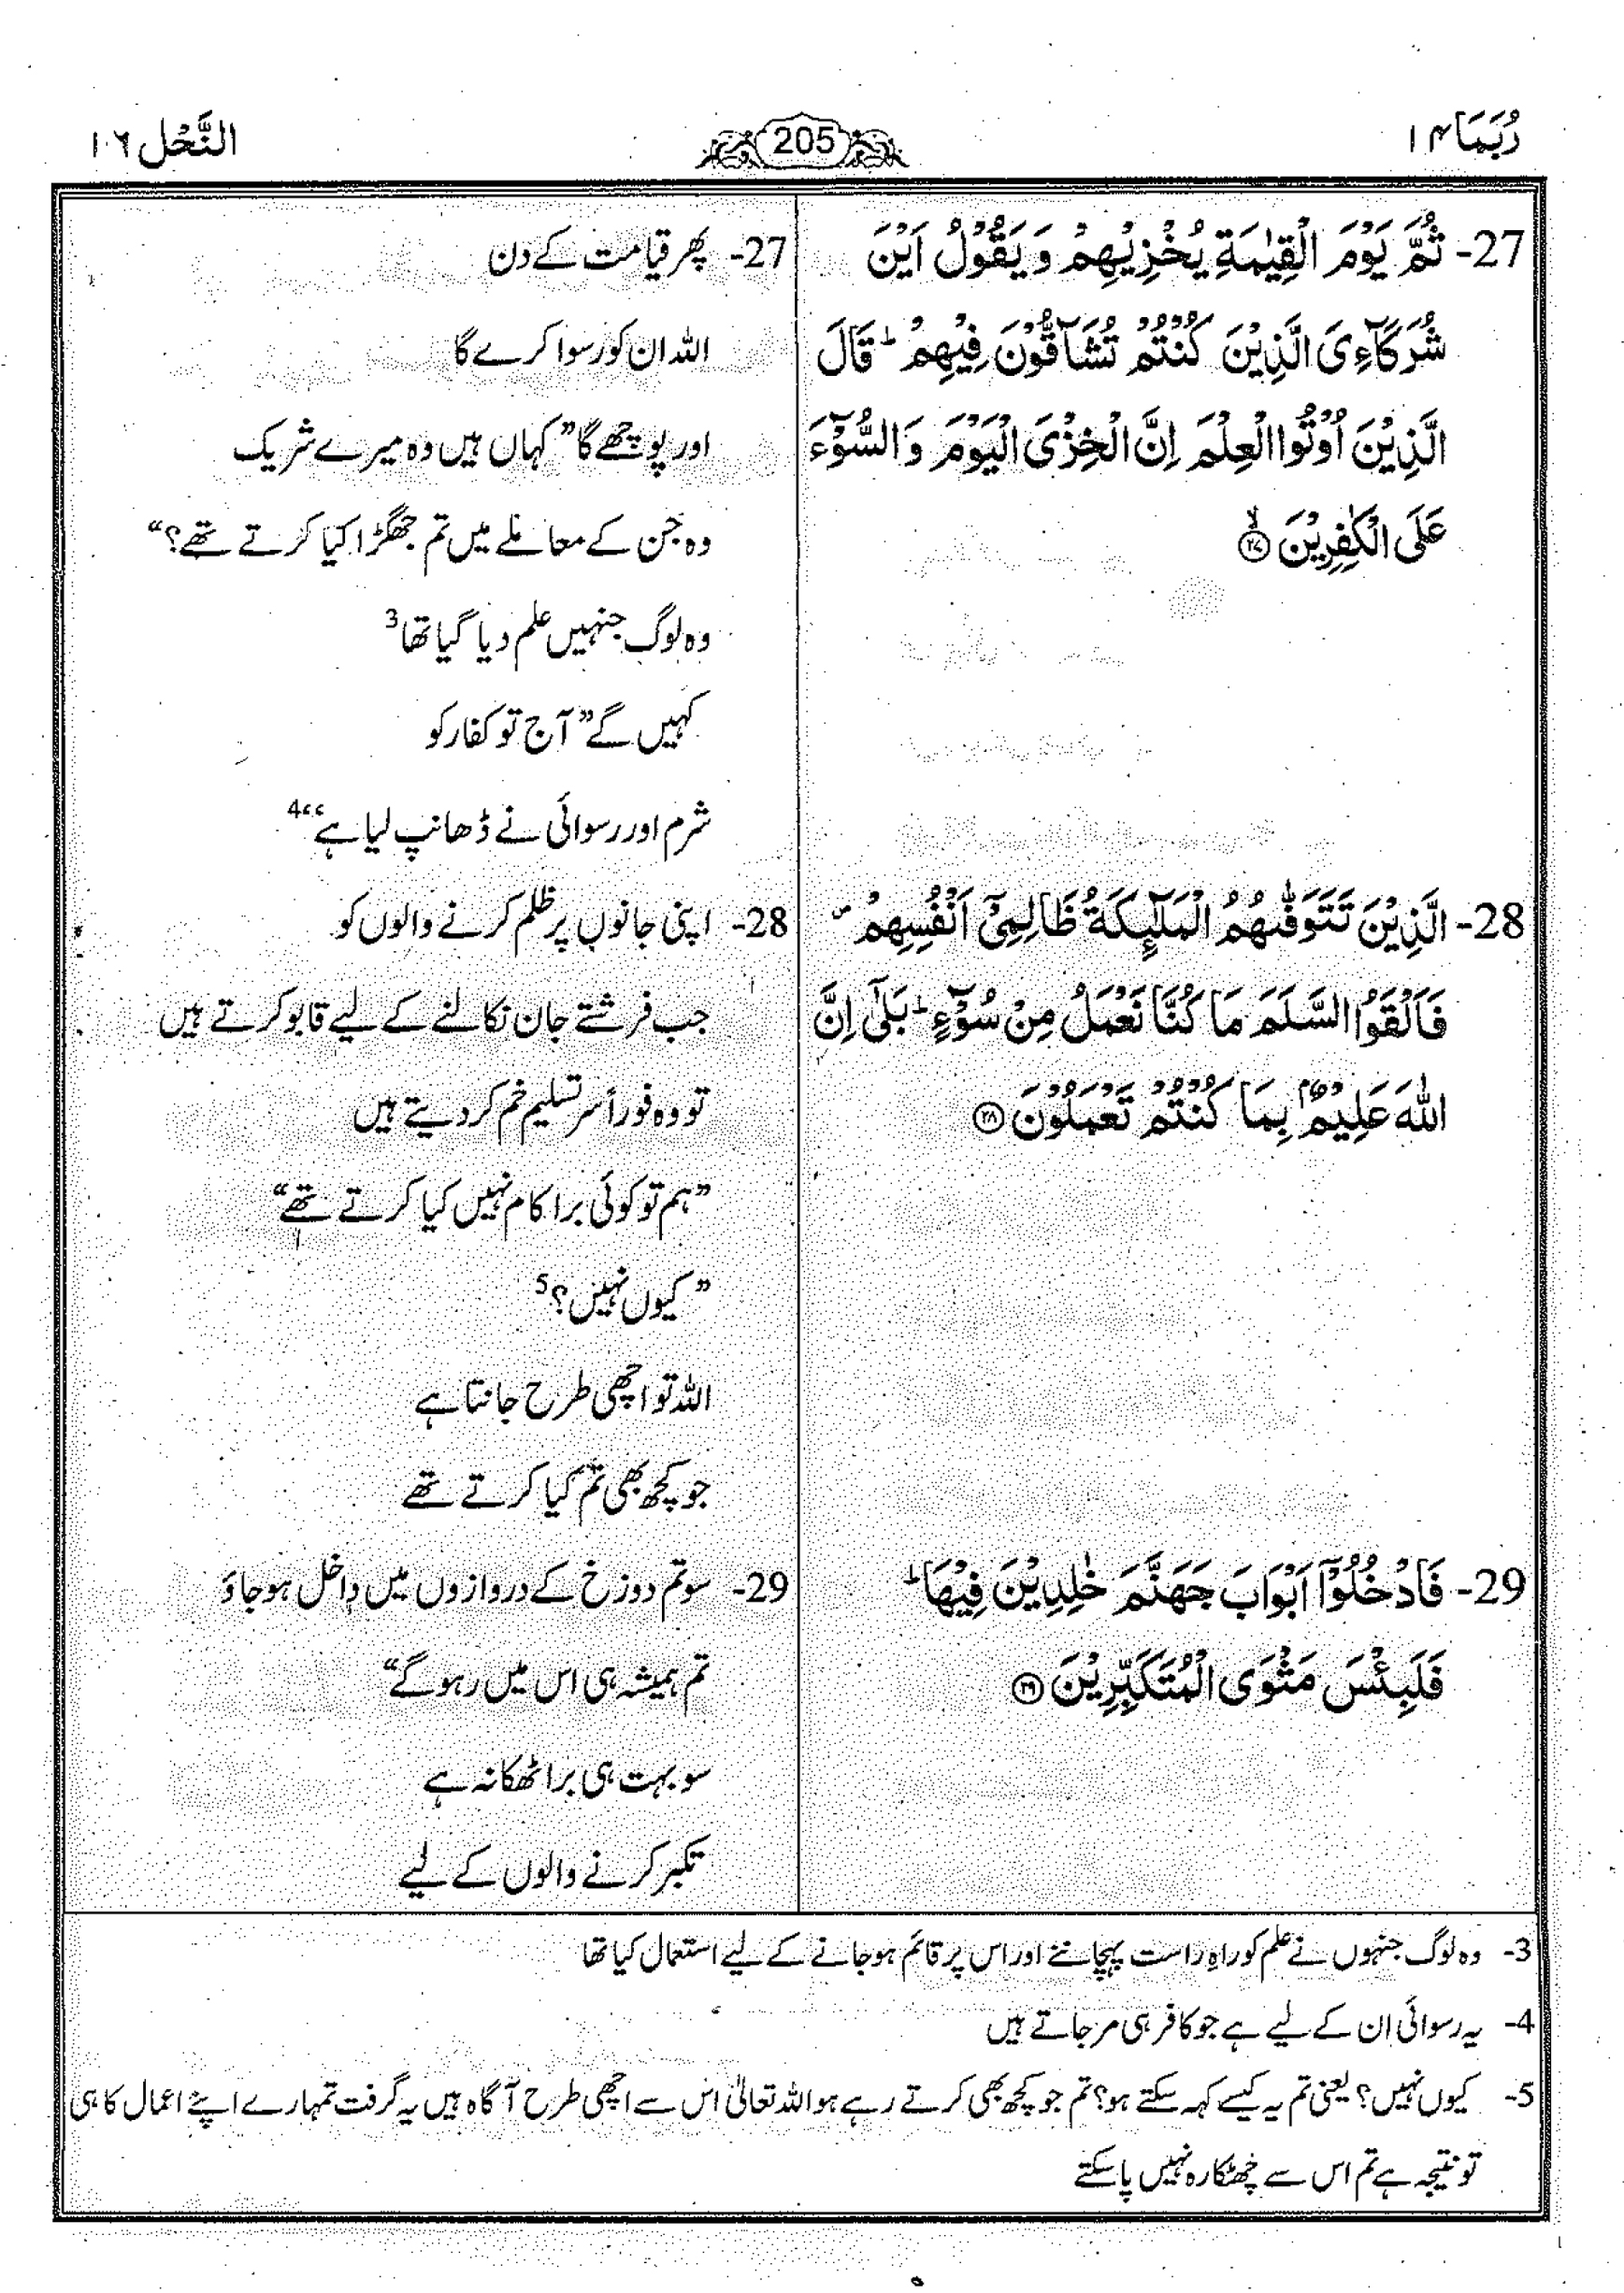 رُبَمَا ۱۴
205
النَّحْل ۱۶
27- ثُمَّ يَوْمَ الْقِيٰمَةِ يُخْزِيْهِمْ وَ يَقُوْلُ اَيْنَ
شُرَكَآءِیَ الَّذِيْنَ كُنْتُمْ تُشَآقُّوْنَ فِيْهِمْ ؕ قَالَ
الَّذِيْنَ اُوْتُوا الْعِلْمَ اِنَّ الْخِزْیَ الْيَوْمَ وَ السُّوْٓءَ
عَلَی الْكٰفِرِيْنَ ۙ﴿۲۷﴾
27- پھر قیامت کے دن
اللہ ان کو رسوا کرے گا
اور پوچھے گا ”کہاں ہیں وہ میرے شریک
وہ جن کے معاملے میں تم جھگڑا کیا کرتے تھے؟“
وہ لوگ جنہیں علم دیا گیا تھا3
کہیں گے ”آج تو کفار کو
شرم اور رسوائی نے ڈھانپ لیا ہے“4
28- الَّذِيْنَ تَتَوَفّٰىهُمُ الْمَلٰٓئِكَةُ ظَالِمِیْٓ اَنْفُسِهِمْ ۪
فَاَلْقَوُا السَّلَمَ مَا كُنَّا نَعْمَلُ مِنْ سُوْٓءٍ ؕ بَلٰۤی اِنَّ
اللّٰهَ عَلِيْمٌۢ بِمَا كُنْتُمْ تَعْمَلُوْنَ ﴿۲۸﴾
28- اپنی جانوں پر ظلم کرنے والوں کو
جب فرشتے جان نکالنے کے لیے قابو کرتے ہیں
تو وہ فوراً سر تسلیم خم کر دیتے ہیں
”ہم تو کوئی برا کام نہیں کیا کرتے تھے“
”کیوں نہیں؟5
اللہ تو اچھی طرح جانتا ہے
جو کچھ بھی تم کیا کرتے تھے
29- فَادْخُلُوْۤا اَبْوَابَ جَهَنَّمَ خٰلِدِيْنَ فِيْهَا ؕ
فَلَبِئْسَ مَثْوَی الْمُتَكَبِّرِيْنَ ﴿۲۹﴾
29- سو تم دوزخ کے دروازوں میں داخل ہو جاؤ
تم ہمیشہ ہی اس میں رہو گے“
سو بہت ہی برا ٹھکانہ ہے
تکبر کرنے والوں کے لیے
3- وہ لوگ جنہوں نے علم کو راہِ راست پہچاننے اور اس پر قائم ہو جانے کے لیے استعمال کیا تھا
4- یہ رسوائی ان کے لیے ہے جو کافر ہی مر جاتے ہیں
5- کیوں نہیں؟ یعنی تم یہ کیسے کہہ سکتے ہو؟ تم جو کچھ بھی کرتے رہے ہو اللہ تعالیٰ اس سے اچھی طرح آگاہ ہیں یہ گرفت تمہارے اپنے اعمال کا ہی
تو نتیجہ ہے تم اس سے چھٹکارہ نہیں پا سکتے